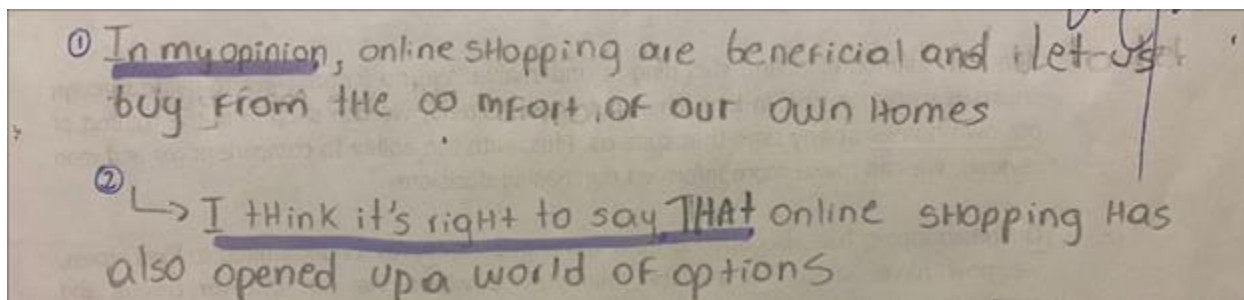 ① In my opinion, online shopping are beneficial and let us
buy From tHe comFort, oF our own Homes
② ↳ I tHink it's rigHt to say THAt online sHopping Has
also opened up a world oF options